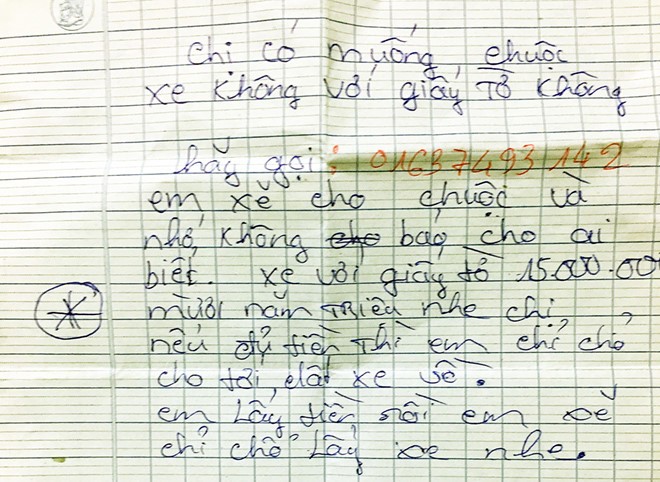 chị có muống chuộc
xe không với giấy tờ không
hãy gọi: 01637493142
em xẽ cho chuộc và
nhớ không cho báo cho ai
biết. xe với giấy tờ 15.000.00
mười năm triệu nhe chị
nếu đủ tiền thì em chỉ chỏ
cho tới, dắt xe về.
em Lấy tiền rồi em xẽ
chỉ chổ Lấy xe nhe.